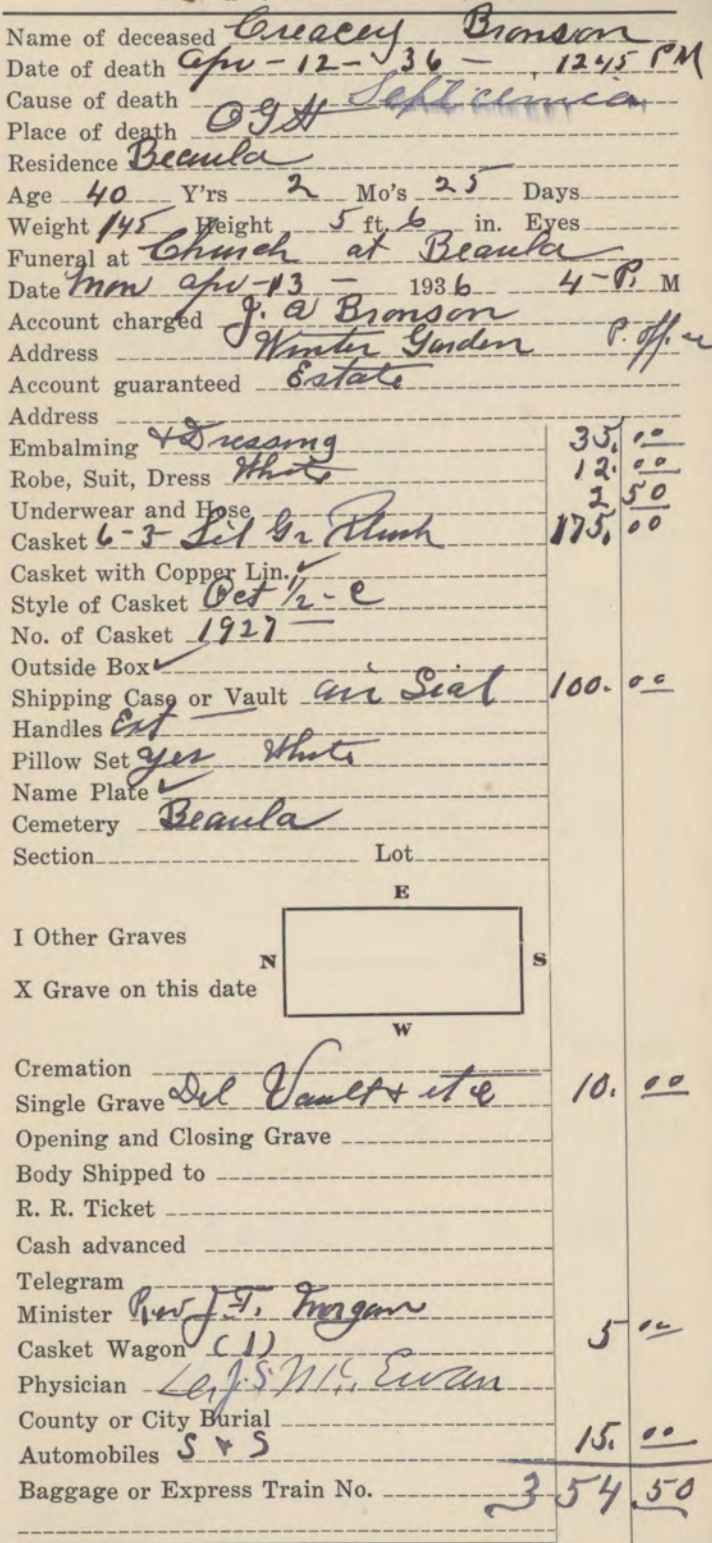 Name of deceased Creacey Bronson
Date of death Apr - 12 - 36 - 1245 PM
Cause of death Septicemia
Place of death OGH
Residence Beaula
Age 40 Y'rs 2 Mo's 25 Days
Weight 145 Height 5 ft. 6 in. Eyes
Funeral at Church at Beaula
Date Mon Apr - 13 - 1936 4 - P. M
Account charged J. A Bronson
Address Winter Garden P. Off
Account guaranteed Estate
Address
Embalming + Dressing 35.00
Robe, Suit, Dress White 12.00
Underwear and Hose 2 50
Casket 6-3 Sil Gr Plush 175.00
Casket with Copper Lin. ✓
Style of Casket Oct 1/2 - C
No. of Casket 1927
Outside Box ✓
Shipping Case or Vault Air Seal 100.00
Handles Ext
Pillow Set Yes White
Name Plate ✓
Cemetery Beaula
Section Lot
E
I Other Graves
N S
X Grave on this date
W
Cremation
Single Grave Del Vault + 10.00
Opening and Closing Grave
Body Shipped to
R. R. Ticket
Cash advanced
Telegram
Minister Rev J. T. Morgan
Casket Wagon (1) 5 00
Physician J. S. Mc Ewan
County or City Burial
Automobiles S + S 15.00
Baggage or Express Train No. 354.50